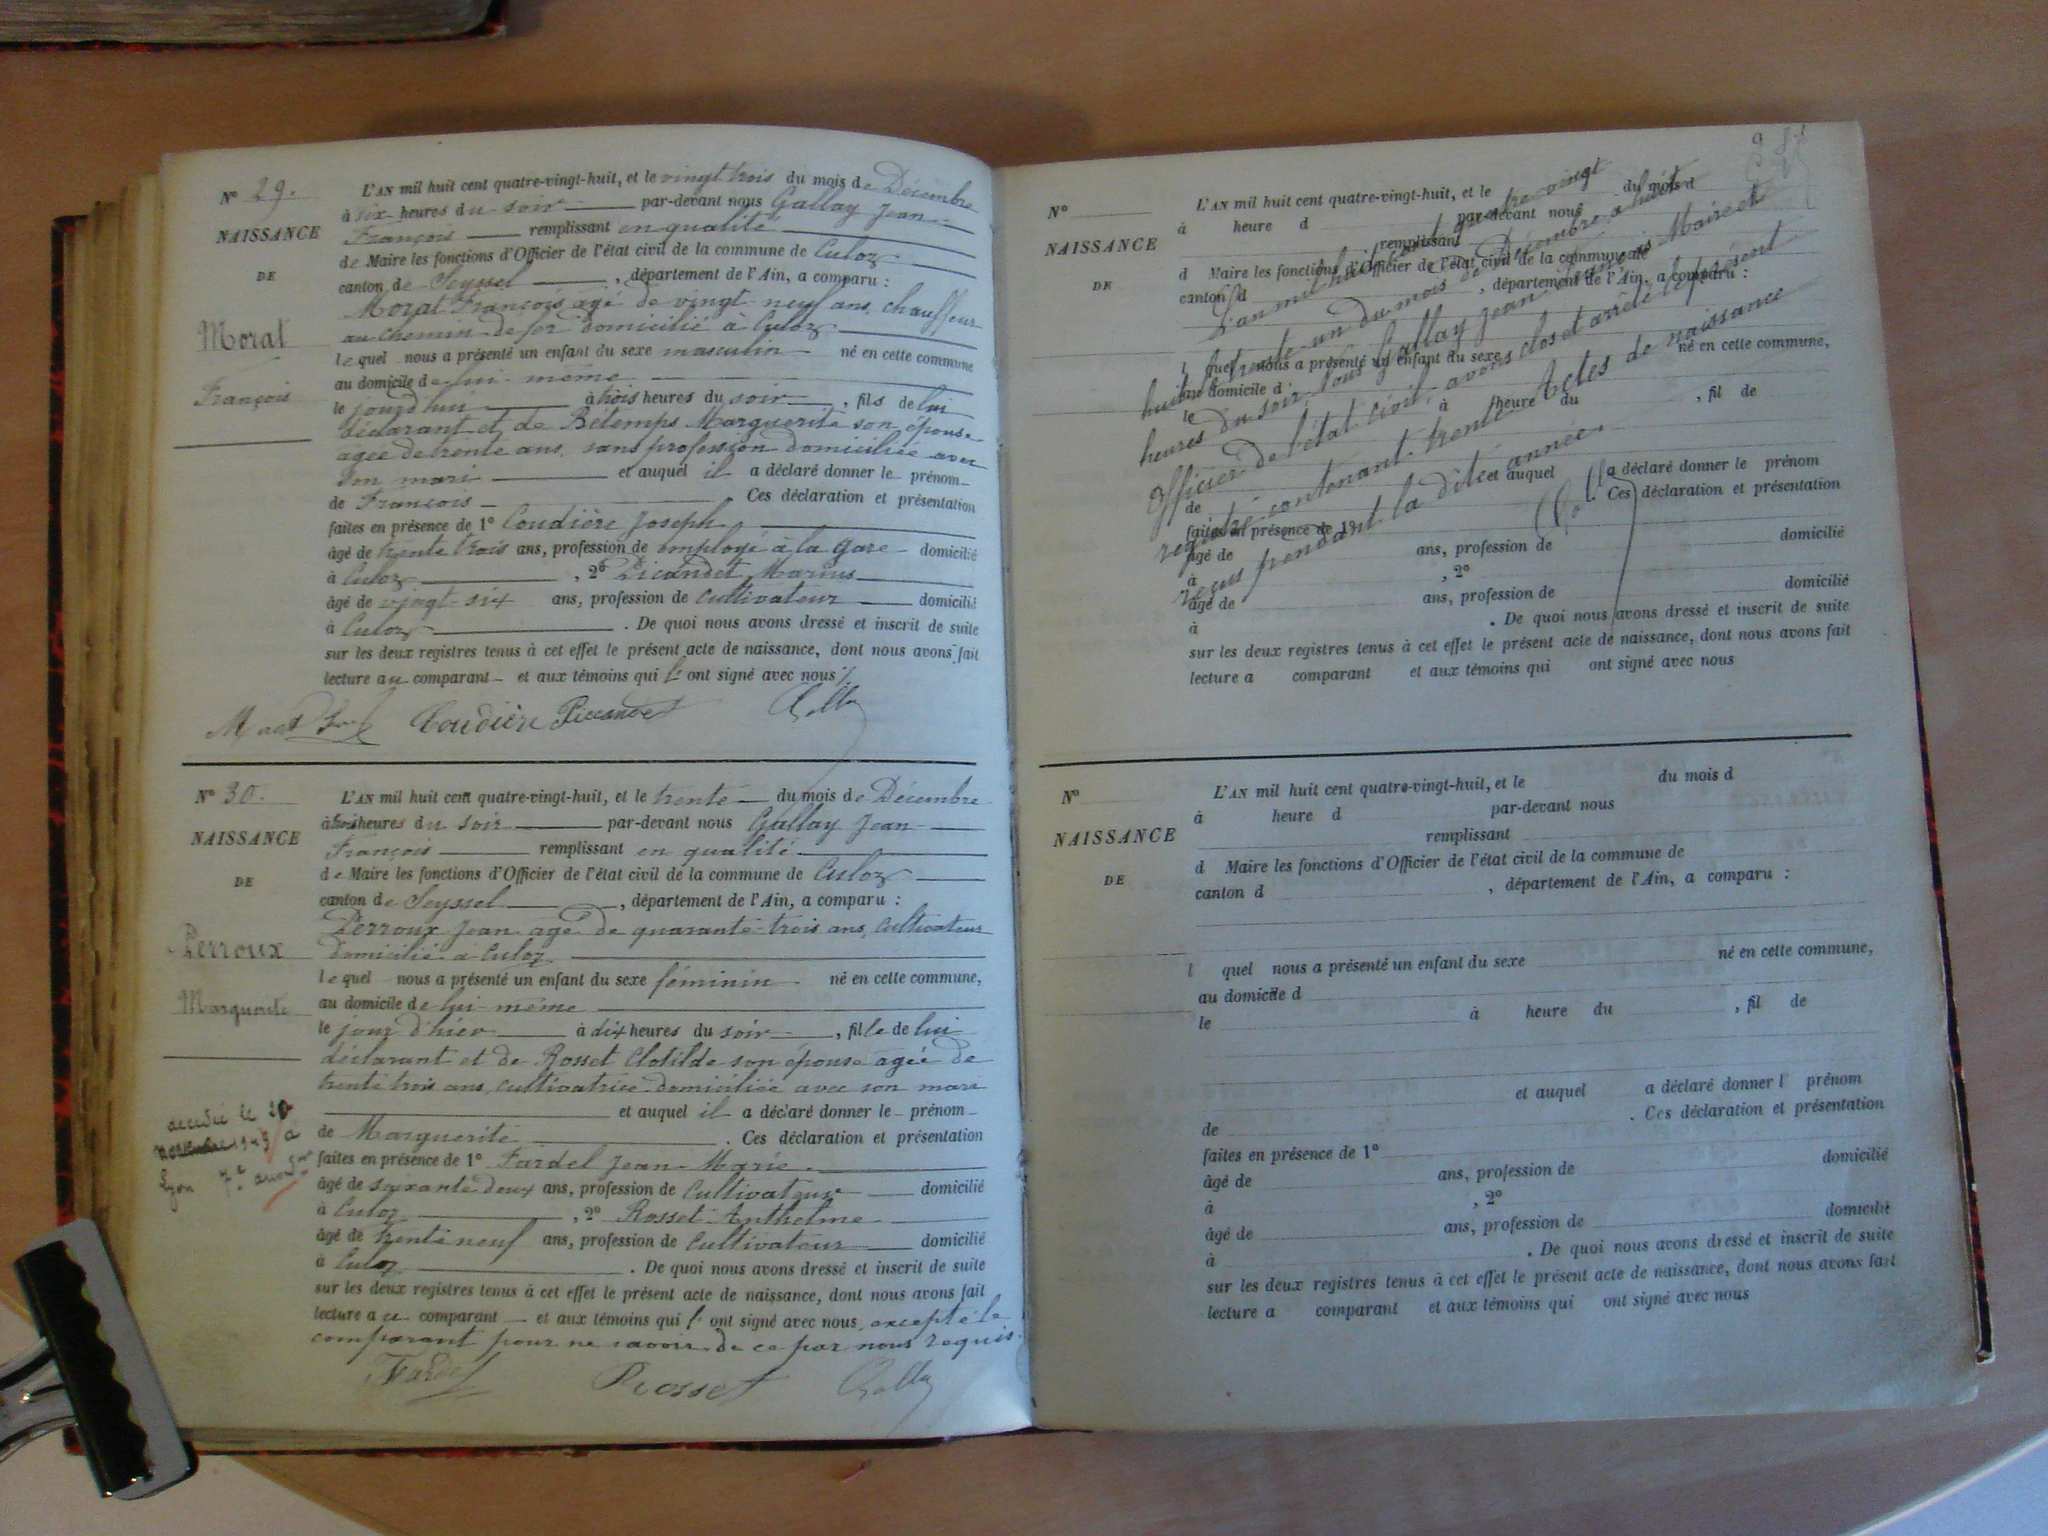 N° 29.
NAISSANCE
DE
Morat
François
L'AN mil huit cent quatre-vingt-huit, et le vingt trois du mois de Décembre
à six heures du soir par-devant nous Gallay Jean
François remplissant en qualité
de Maire les fonctions d'Officier de l'état civil de la commune de Culoz
canton de Seyssel, département de l'Ain, a comparu :
Morat François agé de vingt neuf ans, chauffeur
au chemin de fer domicilié à Culoz
lequel nous a présenté un enfant du sexe masculin né en cette commune
au domicile de lui-même
le jourd'hui à trois heures du soir, fils de lui
déclarant et de Bétemps Marguerite son épouse
agée de trente ans, sans profession domiciliée avec
son mari et auquel il a déclaré donner le prénom
de François. Ces déclaration et présentation
faites en présence de 1° Coudière Joseph
âgé de trente trois ans, profession de employé à la gare domicilié
à Culoz, 2° Picandet Marius
âgé de vingt-six ans, profession de cultivateur domicilié
à Culoz. De quoi nous avons dressé et inscrit de suite
sur les deux registres tenus à cet effet le présent acte de naissance, dont nous avons fait
lecture au comparant et aux témoins qui ont signé avec nous
Coudière Piccandet
N° 30.
NAISSANCE
DE
Perroux
Marguerite
L'AN mil huit cent quatre-vingt-huit, et le trente du mois de Décembre
à trois heures du soir par-devant nous Gallay Jean
François remplissant en qualité
de Maire les fonctions d'Officier de l'état civil de la commune de Culoz
canton de Seyssel, département de l'Ain, a comparu :
Perroux Jean agé de quarante-trois ans, cultivateur
domicilié à Culoz
lequel nous a présenté un enfant du sexe féminin né en cette commune,
au domicile de lui-même
le jour d'hier à dix heures du soir, fille de lui
déclarant et de Rosset Clotilde son épouse agée de
trente trois ans, cultivatrice domiciliée avec son mari
et auquel il a déclaré donner le prénom
de Marguerite. Ces déclaration et présentation
faites en présence de 1° Fardel Jean-Marie
âgé de soixante deux ans, profession de Cultivateur domicilié
à Culoz, 2° Rosset Anthelme
âgé de trente neuf ans, profession de Cultivateur domicilié
à Culoz. De quoi nous avons dressé et inscrit de suite
sur les deux registres tenus à cet effet le présent acte de naissance, dont nous avons fait
lecture au comparant et aux témoins qui ont signé avec nous, excepté le
comparant pour ne savoir de ce par nous requis.
Fardel Rosset
décédée le
novembre à
Lyon 7e arrond
N°
NAISSANCE
DE
L'AN mil huit cent quatre-vingt-huit, et le du mois d
à heure d par-devant nous
remplissant
d Maire les fonctions d'Officier de l'état civil de la commune de
canton d, département de l'Ain, a comparu :
quel nous a présenté un enfant du sexe né en cette commune,
au domicile d
le à heure du, fil de
et auquel a déclaré donner le prénom
de. Ces déclaration et présentation
faites en présence de 1°
âgé de ans, profession de domicilié
à, 2°
âgé de ans, profession de domicilié
à. De quoi nous avons dressé et inscrit de suite
sur les deux registres tenus à cet effet le présent acte de naissance, dont nous avons fait
lecture a comparant et aux témoins qui ont signé avec nous
L'an mil huit cent quatre vingt
huit le trente-un du mois de Décembre à huit
heures du soir, nous Gallay Jean François Maire et
officier de l'état civil, avons clos et arrêté le présent
registre contenant trente Actes de naissance
reçus pendant la dite année.
N°
NAISSANCE
DE
L'AN mil huit cent quatre-vingt-huit, et le du mois d
à heure d par-devant nous
remplissant
d Maire les fonctions d'Officier de l'état civil de la commune de
canton d, département de l'Ain, a comparu :
l quel nous a présenté un enfant du sexe né en cette commune,
au domicile d
le à heure du, fil de
et auquel a déclaré donner l prénom
de. Ces déclaration et présentation
faites en présence de 1°
âgé de ans, profession de domicilié
à, 2°
âgé de ans, profession de domicilié
à. De quoi nous avons dressé et inscrit de suite
sur les deux registres tenus à cet effet le présent acte de naissance, dont nous avons fait
lecture a comparant et aux témoins qui ont signé avec nous